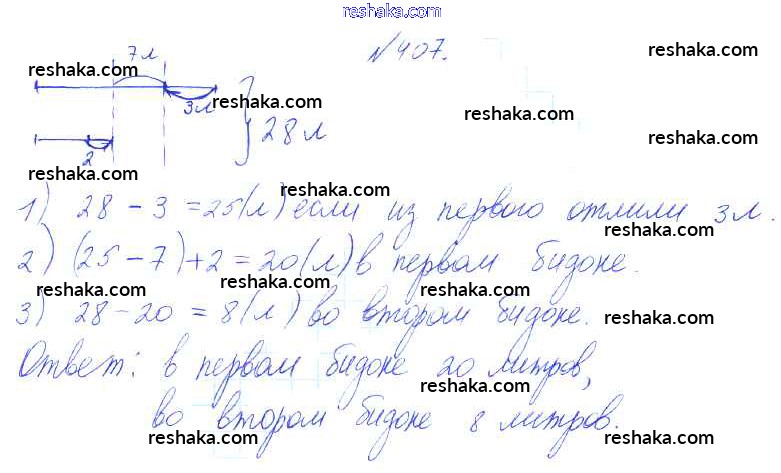 reshaka.com
№407.
7л
reshaka.com
3л
reshaka.com
reshaka.com
28л
reshaka.com
2
reshaka.com
reshaka.com
1) 28 - 3 = 25(л) если из первого отлили 3л.
reshaka.com
2) (25 - 7) + 2 = 20(л) в первом бидоне.
reshaka.com
reshaka.com
3) 28 - 20 = 8(л) во втором бидоне.
reshaka.com
Ответ: в первом бидоне 20 литров,
reshaka.com
во втором бидоне 8 литров.
reshaka.com
reshaka.com